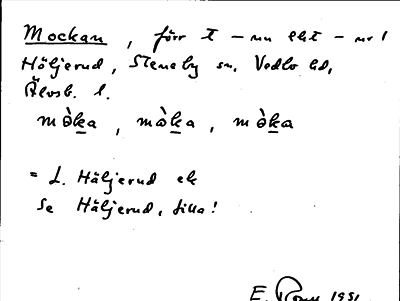 Mockan, förr t – nu lht – nr 1
Höljerud, Steneby sn, Vedbo hd,
Älvsb. l.
mò̀ka, mò̀ka, mò̀ka
= L. Höljerud ek
Se Höljerud, lilla!
E. 1951